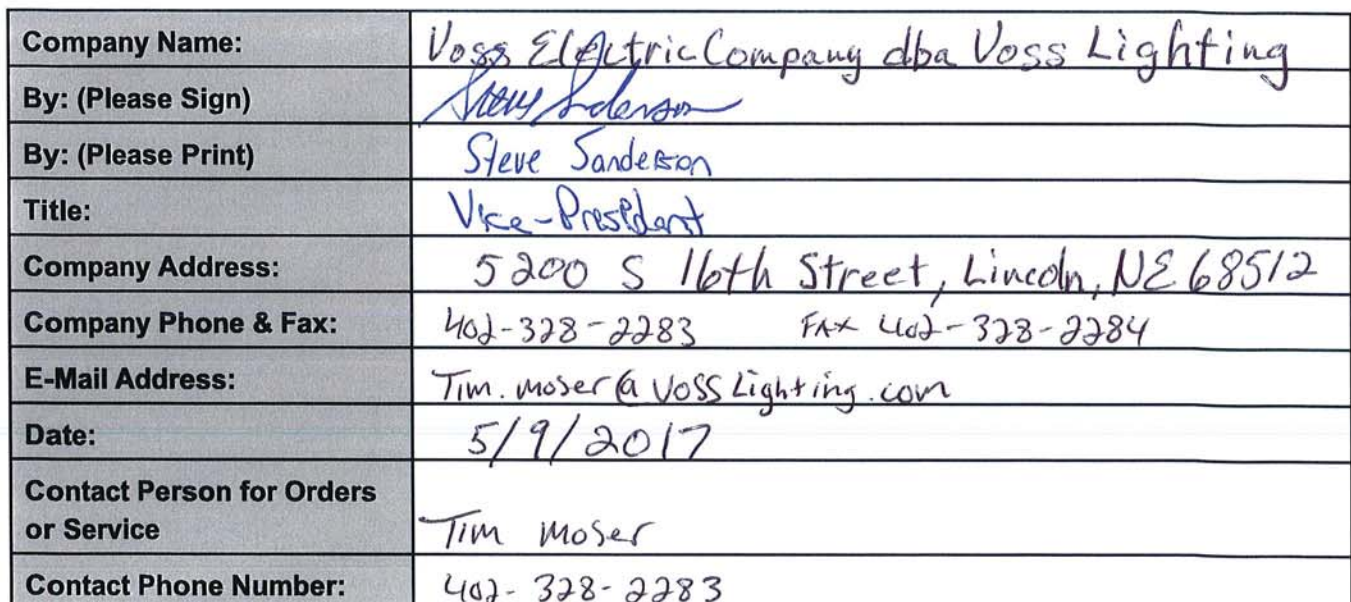 Company Name: Voss Electric Company dba Voss Lighting
By: (Please Sign) Steve Sanderson
By: (Please Print) Steve Sanderson
Title: Vice-President
Company Address: 5200 S 16th Street, Lincoln, NE 68512
Company Phone & Fax: 402-328-2283 FAX 402-328-2284
E-Mail Address: Tim.moser@VossLighting.com
Date: 5/9/2017
Contact Person for Orders
or Service Tim Moser
Contact Phone Number: 402-328-2283